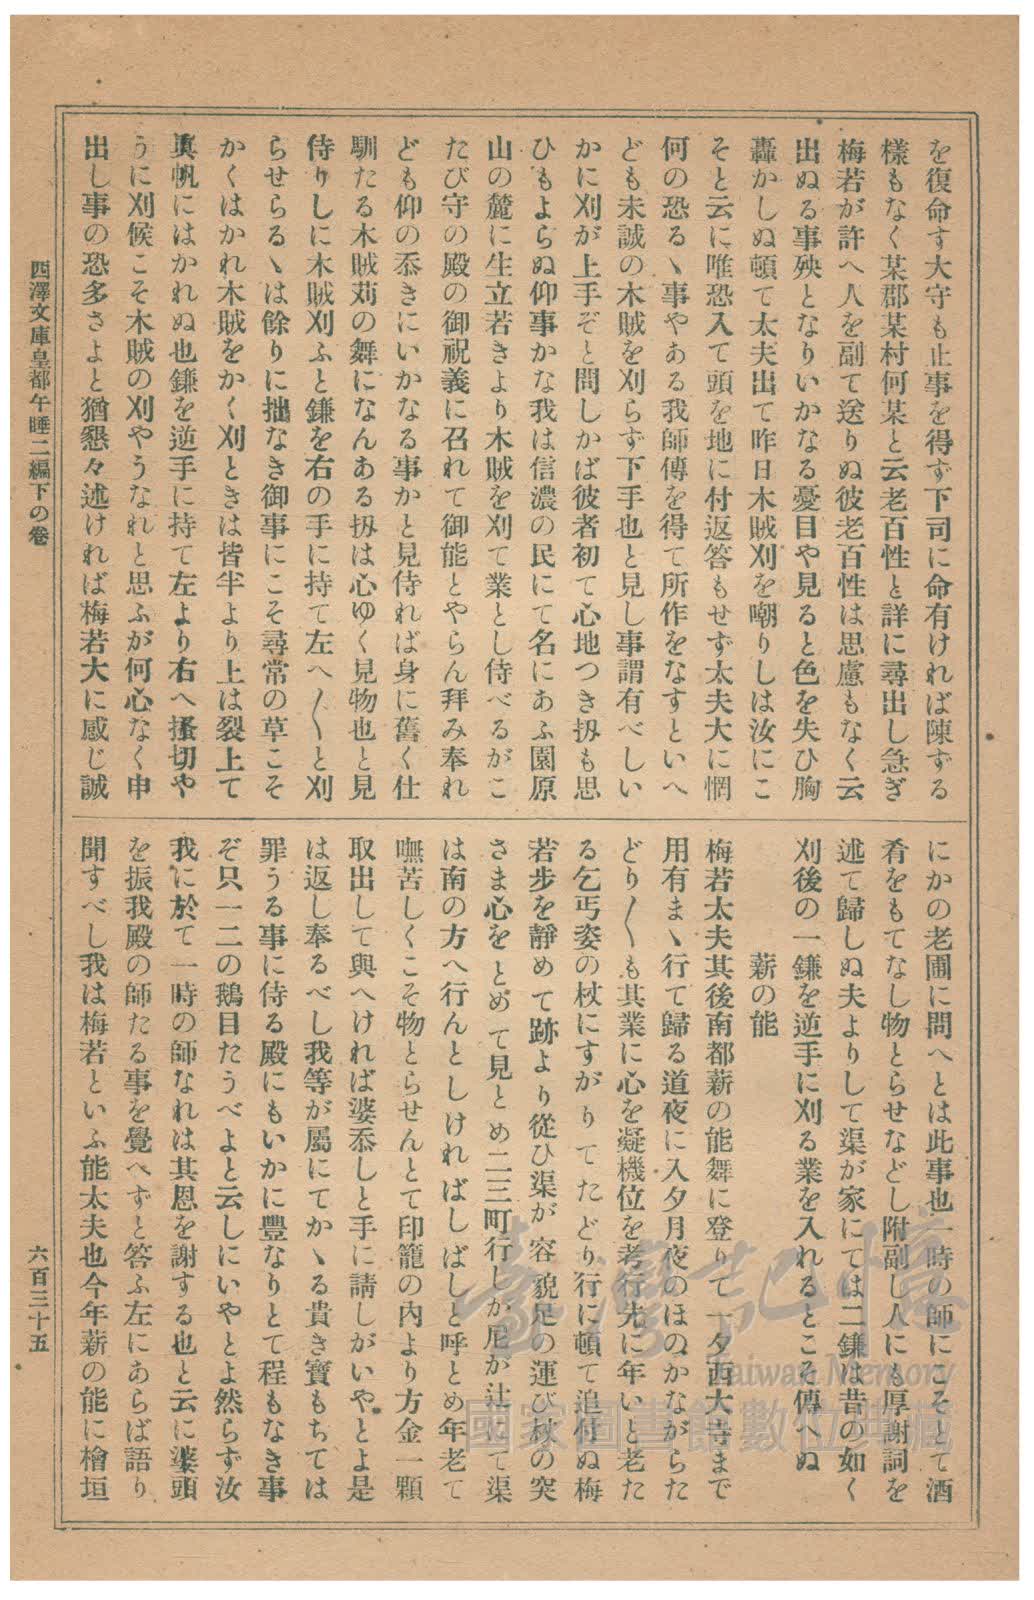 を復命す大守も止事を得ず下司に命有ければ陳ずる
樣もなく某郡某村何某と云老百性と詳に尋出し急ぎ
梅若が許へ人を副て送りぬ彼老百性は思慮もなく云
出ぬる事殃となりいかなる憂目や見ると色を失ひ胸
轟かしぬ頓て太夫出て昨日木賊刈を嘲りしは汝にこ
そと云に唯恐入て頭を地に付返答もせず太夫大に惘
何の恐るヽ事やある我師傳を得て所作をなすといへ
ども未誠の木賊を刈らず下手也と見し事謂有べしい
かに刈が上手ぞと問しかば彼者初て心地つき扨も思
ひもよらぬ仰事かな我は信濃の民にて名にあふ園原
山の麓に生立若きより木賊を刈て業とし侍べるがこ
たび守の殿の御祝義に召れて御能とやらん拜み奉れ
ども仰の忝きにいかなる事かと見侍れば身に舊く仕
馴たる木賊苅の舞になんある扨は心ゆく見物也と見
侍りしに木賊刈ふと鎌を右の手に持て左へ〳〵と刈
らせらるヽは餘りに拙なき御事にこそ尋常の草こそ
かくはかれ木賊をかく刈ときは皆半より上は裂上て
眞帆にはかれぬ也鎌を逆手に持て左より右へ搔切や
うに刈候こそ木賊の刈やうなれと思ふが何心なく申
出し事の恐多さよと猶懇々述ければ梅若大に感じ誠
にかの老圃に問へとは此事也一時の師にこそとて酒
肴をもてなし物とらせなどし附副し人にも厚謝詞を
述て歸しぬ夫よりして渠が家にては二鎌は昔の如く
刈後の一鎌を逆手に刈る業を入れるとこそ傳へぬ
薪の能
梅若太夫其後南都薪の能舞に登りて一夕西大寺まで
用有まヽ行て歸る道夜に入夕月夜のほのかながらた
どり〳〵も其業に心を凝機位を考行先に年いと老た
る乞丐姿の杖にすがりてたどり行に頓て追付ぬ梅
若步を靜めて跡より從ひ渠が容貌足の運び杖の突
さま心をとめて見とめ二三町行しが尼が辻にて渠
は南の方へ行んとしければしばしと呼とめ年老て
嘸苦しくこそ物とらせんとて印籠の內より方金一顆
取出して與へければ婆忝しと手に請しがいやとよ是
は返し奉るべし我等が屬にてかヽる貴き寶もちては
罪うる事に侍る殿にもいかに豐なりとて程もなき事
ぞ只一二の鵝目たうべよと云しにいやとよ然らず汝
我に於て一時の師なれは其恩を謝する也と云に婆頭
を振我殿の師たる事を覺へずと答ふ左にあらば語り
聞すべし我は梅若といふ能太夫也今年薪の能に檜垣
西澤文庫皇都午睡二編下の卷
六百三十五
臺灣記憶
Taiwan Memory
國家圖書館數位典藏